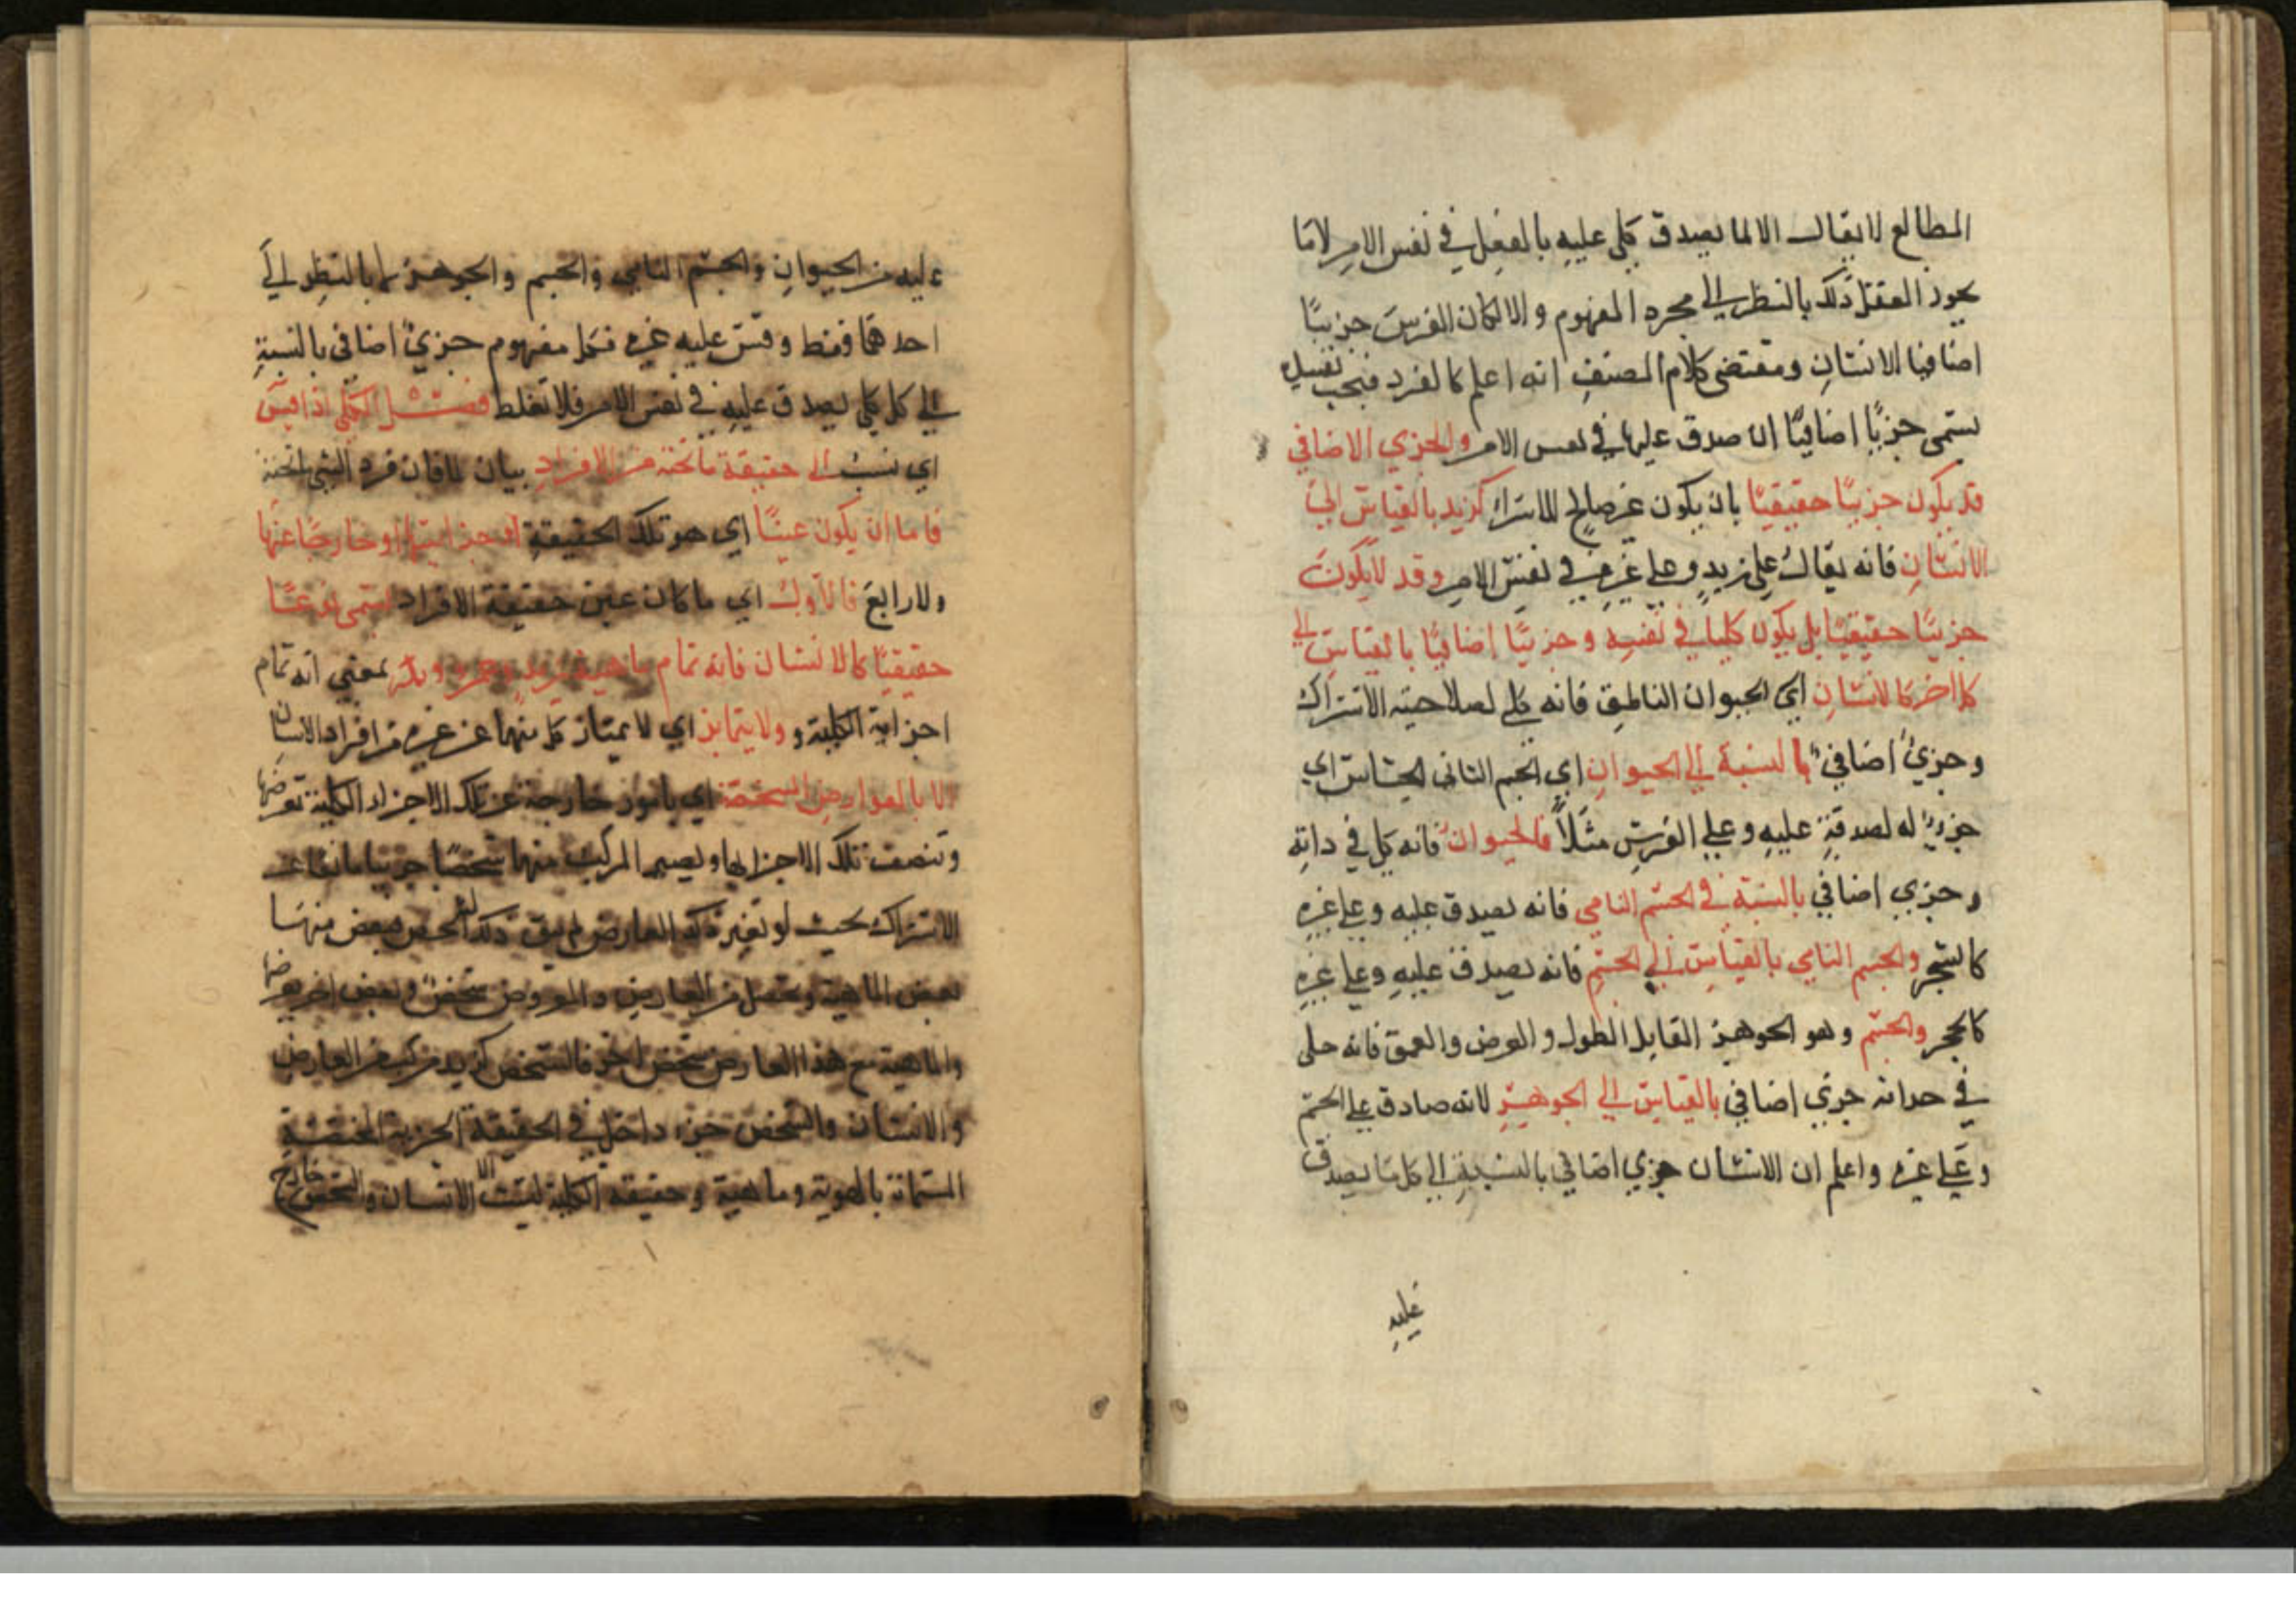 المطالع لا يقال الا لما يصدق كلي عليه بالفعل في نفس الامر لا ما
يجوز العقل ذلك بالنظر الي مجرد المفهوم والا لكان الفرس جزييًا
اضافيا الانسان ومقتضى كلام المصنف انه اعلم كالفرد فيجب تقييده
يسمى جزيًا اضافيًا ان صدق عليها في نفس الامر والجزي الاضافي
قد يكون جزييًا حقيقيًا بان يكون غير صالح للاشتراك كزيد بالقياس الي
الانسان فانه يقال على زيد وعلى غيره في نفس الامر وقد لا يكون
جزييًا حقيقيًا بل يكون كليا في نفسه وجزييًا اضافيًا بالقياس الي
كلي اخر كالانسان اي الحيوان الناطق فانه كلي لصلاحيته الاشتراك
وجزيٌ اضافيٌ بالنسبة الي الحيوان اي الجسم النامي الحساس اي
جزيٌ له لصدقه عليه وعلي الفرس مثلاً فالحيوان فانه كلي في ذاته
وجزي اضافي بالنسبة في الجسم النامي فانه يصدق عليه وعلي غيره
كالشجر والجسم النامي بالقياس الي الجسم فانه يصدق عليه وعلي غيره
كالحجر والجسم وهو الجوهر القابل الطول والعرض والعمق فانه كلي
في حد ذاته جزي اضافي بالقياس الي الجوهر لانه صادق على الجسم
وعلي غيره واعلم ان الانسان جزي اضافي بالنسبة الي كل ما يصدق
عليه
عليه من الحيوان والجسم النامي والجسم والجوهر لا بالنظر الي
احدهما فقط وقس عليه غيره فكل مفهوم جزيٌ اضافي بالنسبة
الي كل كلي يصدق عليه في نفس الامر فلا تغلط الكلي اذا قيس
اي نسب الى حقيقة ما تحته من الافراد بيان لما فان فرد الشي تحته
فاما ان يكون عينًا اي هو تلك الحقيقة او جزا منها او خارجًا عنها
ولا رابع فالاول اي ما كان عين حقيقة الافراد يسمى نوعًا
حقيقيًا كالانسان فانه تمام ماهية زيد وعمرو وبكر بمعني انه تمام
اجزايه الكلية و ولا يتمايز اي لا يمتاز كل منها عن غيره من افراد الانسان
الا بالعوارض المشخصة اي بامور خارجة عن تلك الاجزاء الكلية تعرضها
وتنصف تلك الاجزا بها ويصير المركب منها شخصًا جزييا مانعا عن
الاشتراك بحيث لو تغير ذلك العارض لم يبق ذلك الشخص فبعض منها
بعض الماهية ويحصل من العارض والمعروض شخصٌ وبعض اخر يعرضها
والماهية مع هذا العارض شخص اخر فالشخص كزيد مركب من العارض
والانسان والشخص جزء داخل في الحقيقة الجزية الحقيقية
المسماة بالهوية وماهية وحقيقته الكلية ليست الا الانسان والشخص خارج